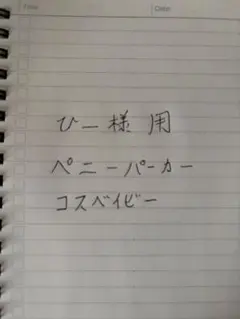 ひー様用
ペニーパーカー
コスベイビー